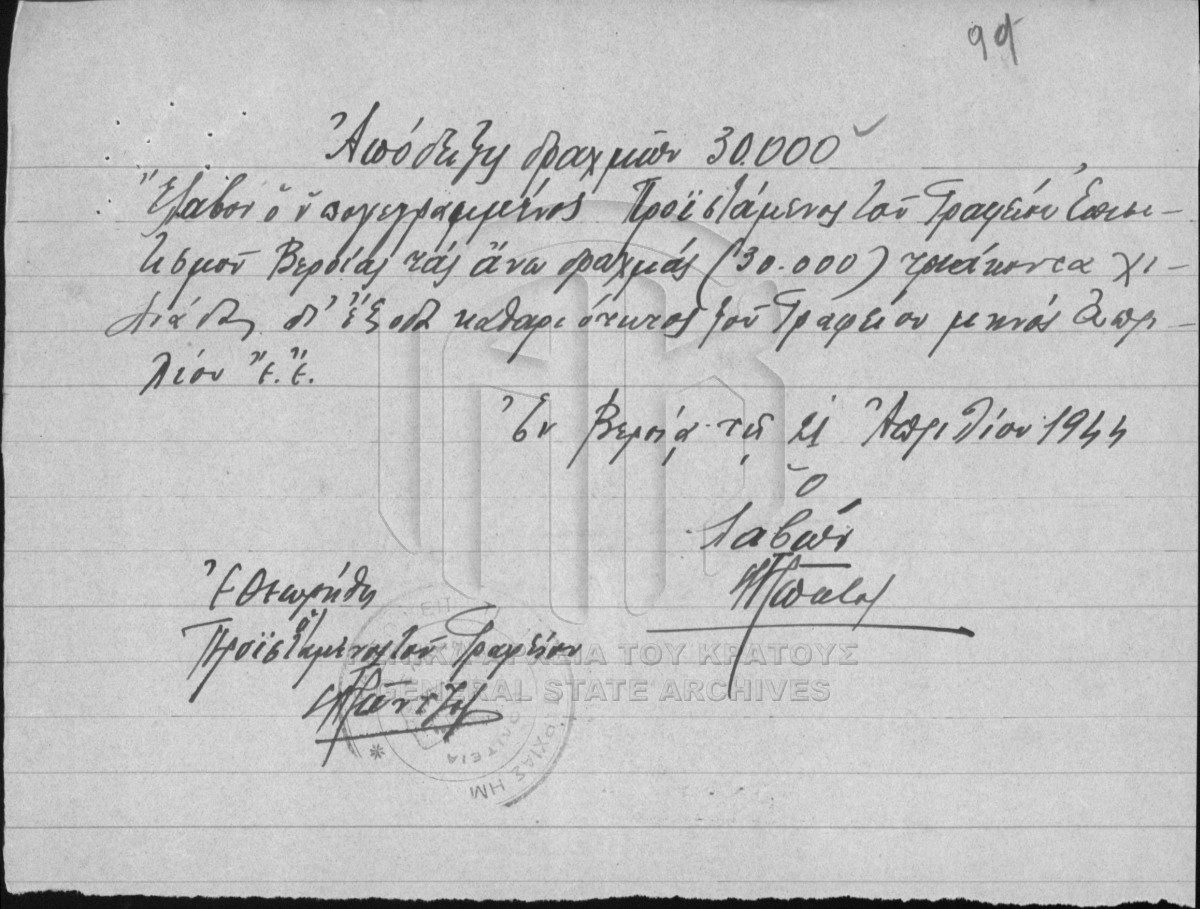 99
Ἀπόδειξις δραχμῶν 30.000
Ἔλαβον ὁ ὑπογεγραμμένος Προϊστάμενος τοῦ Γραφείου Ἐπισι-
τισμοῦ Βεροίας τάς ἄνω δραχμάς (30.000) τριάκοντα χι-
λιάδες δι' ἔξοδα καθαριότητος τοῦ Γραφείου μηνός Ἀπρι-
λίου ἔ.ἔ.
Ἐν Βεροίᾳ τῇ 21 Ἀπριλίου 1944
Ὁ
Λαβών
Ἐθεωρήθη
ὁ
Προϊστάμενος τοῦ Γραφείου
ΓΕΝΙΚΑ ΑΡΧΕΙΑ ΤΟΥ ΚΡΑΤΟΥΣ
GENERAL STATE ARCHIVES
ΠΟΛΙΤΕΙΑ